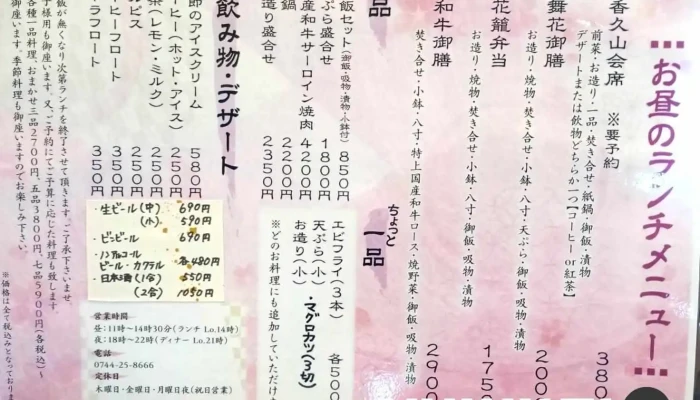 お昼のランチメニュー
香久山会席 ※要予約 380
前菜・お造り・一品・焚き合せ・紙鍋・御飯・漬物
デザートまたは飲物どちらか一つ【コーヒー or 紅茶】
舞花御膳 200
お造り・焼物・焚き合せ・小鉢・八寸・天ぷら・御飯・吸物・漬物
花籠弁当 1750
お造り・焼物・焚き合せ・小鉢・八寸・御飯・吸物・漬物
和牛御膳 2900
焚き合せ・小鉢・八寸・特上国産和牛ロース・焼野菜・御飯・吸物・漬物
一品
飯セット(御飯・吸物・漬物・小鉢付) 850円
ぷら盛合せ 1800円
産和牛サーロイン焼肉 4200円
鍋 2200円
造り盛合せ 2350円
ちょっと一品
エビフライ(3本)
天ぷら(小) 各500
お造り(小)
・マグロカツ(3切)
※どのお料理にも追加していただけま
飲み物・デザート
節のアイスクリーム 580円
ーヒー(ホット・アイス) 250円
茶(レモン・ミルク) 250円
ピス 250円
ーヒーフロート 350円
ラフロート 350円
・生ビール(中) 690円
(小) 590円
・ビンビール 690円
・ノンアルコール
ビール・カクテル 各480円
・日本酒(1合) 550円
(2合) 1050円
営業時間
昼:11時~14時30分(ランチ Lo.14時)
夜:18時~22時(ディナー Lo.21時)
電話
0744-25-8666
定休日
木曜日・金曜日・月曜日夜(祝日営業)
飯が無くなり次第ランチを終了させて頂きます。ご了承下さいませ。
子様用も御座います。又、ご予約にてご予算に応じた料理も致します
各種一品料理、おまかせ三品2700円、五品3800円、七品5900円(各税込)~
御座います。季節料理も御座いますのでお楽しみ下さい。
※価格は全て税込みとなっておりま